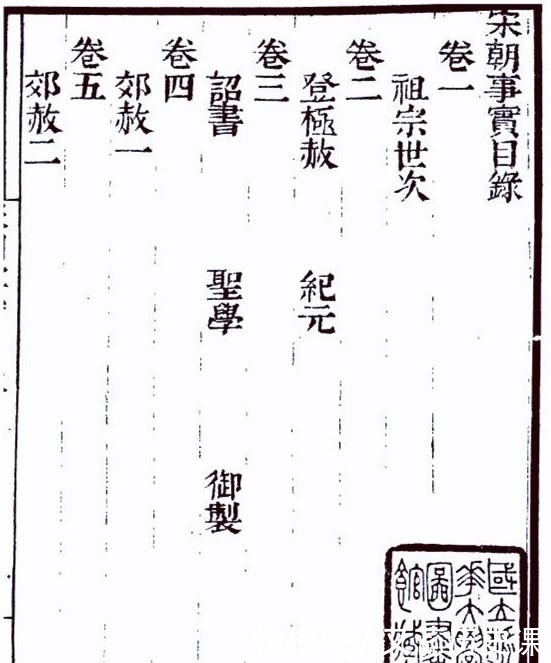 宋朝事實目錄
卷一
祖宗世次
卷二
登極赦 紀元
卷三
詔書 聖學 御製
卷四
郊赦一
卷五
郊赦二